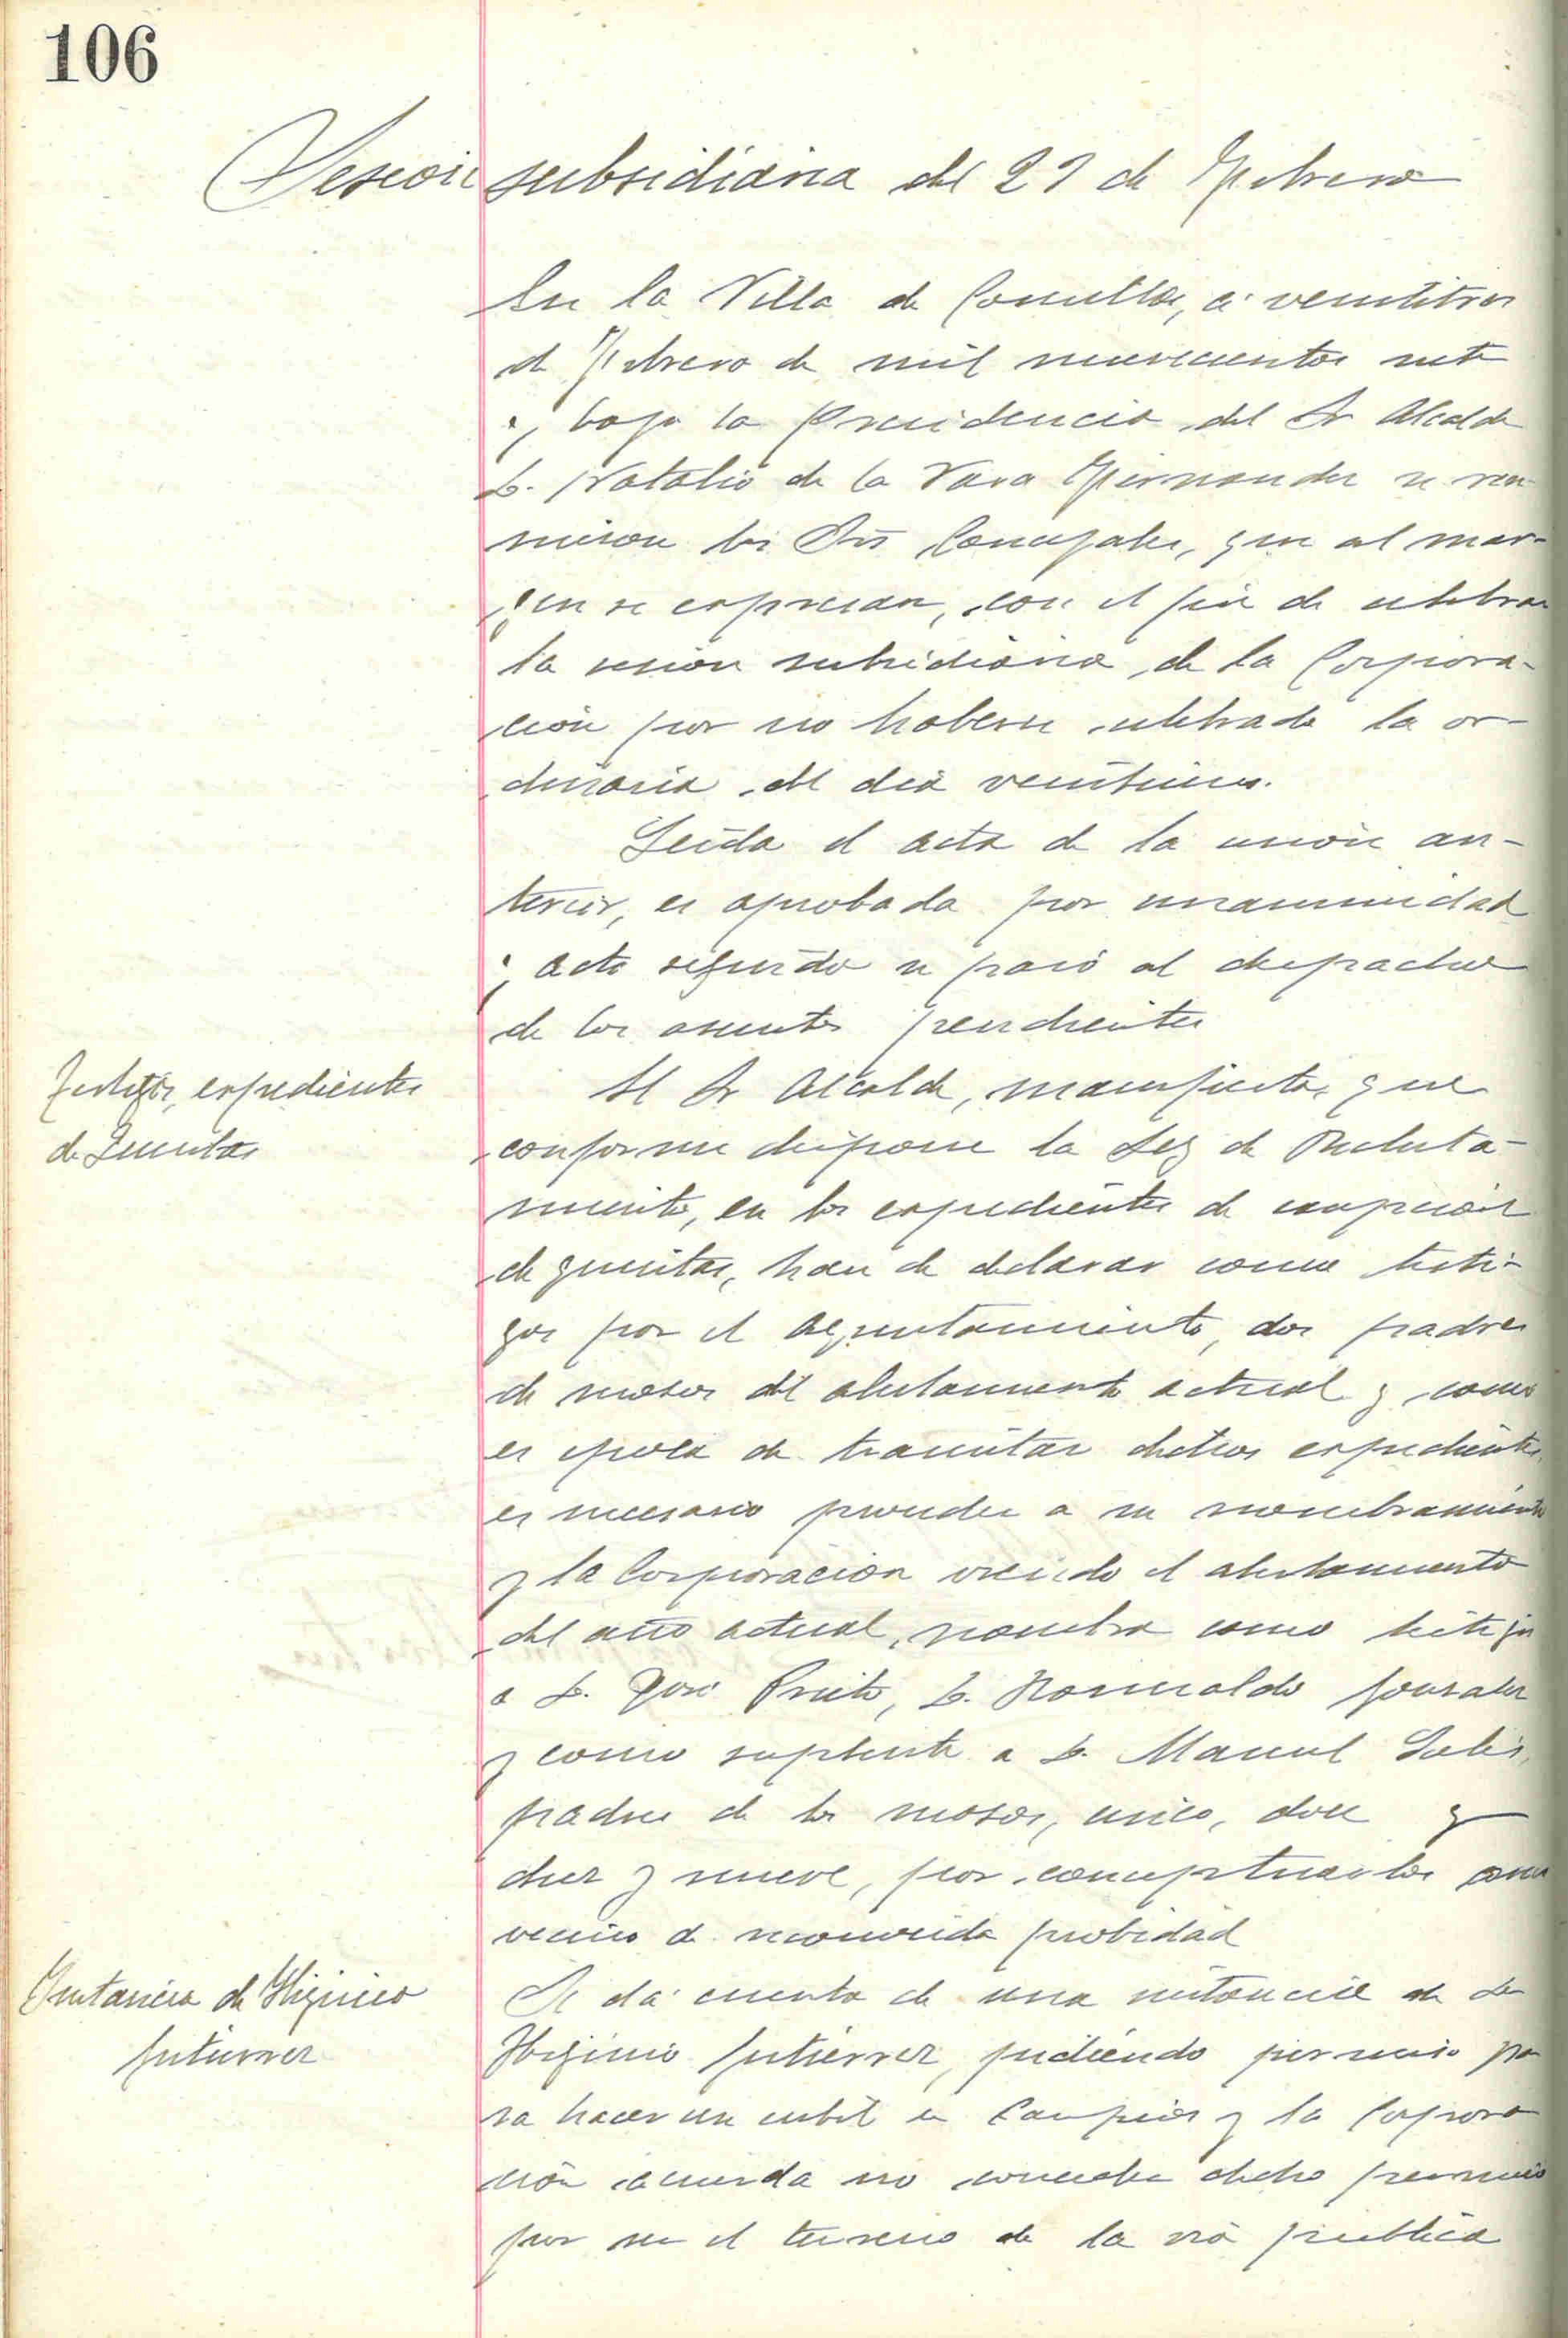 106
Sesion subsidiaria del 23 de Febrero
En la Villa de Comillas, á veintitres
de Febrero de mil novecientos siete
y bajo la Presidencia del Sr Alcalde
D. Natalio de la Vara Fernandez se reu-
nieron los Srs Concejales, que al mar-
gen se expresan, con el fin de celebrar
la sesion subsidiaria de la Corpora-
ción por no haberse celebrado la or-
dinaria del dia veintiuno.
Leida el acta de la sesión an-
terior, es aprobada por unanimidad
y acto seguido se pasó al despacho
de los asuntos pendientes
Testigos, expedientes
de Quintas
El Sr Alcalde, manifiesta, que
conforme dispone la Ley de Recluta-
miento, en los expedientes de excepción
de quintas, han de declarar como testi-
gos por el Ayuntamiento, dos padres
de mozos del alistamiento actual y como
es epoca de tramitar dichos expedientes,
es necesario proceder a su nombramiento
y la Corporación viendo el alistamiento
del año actual, nombra como testigos
a D. José Prieto, D. Romualdo Gonzalez
y como suplente a D. Manuel Solis,
padres de los mozos, cinco, doce y
diez y nueve, por conceptuarlos como
vecinos de reconocida probidad
Instancia de Higinio
Gutierrez
Se dá cuenta de una instancia de D.
Higinio Gutierrez, pidiendo permiso pa
ra hacer un cubil en Campios y la Corpora
ción acuerda no conceder dicho permiso
por ser el terreno de la via publica